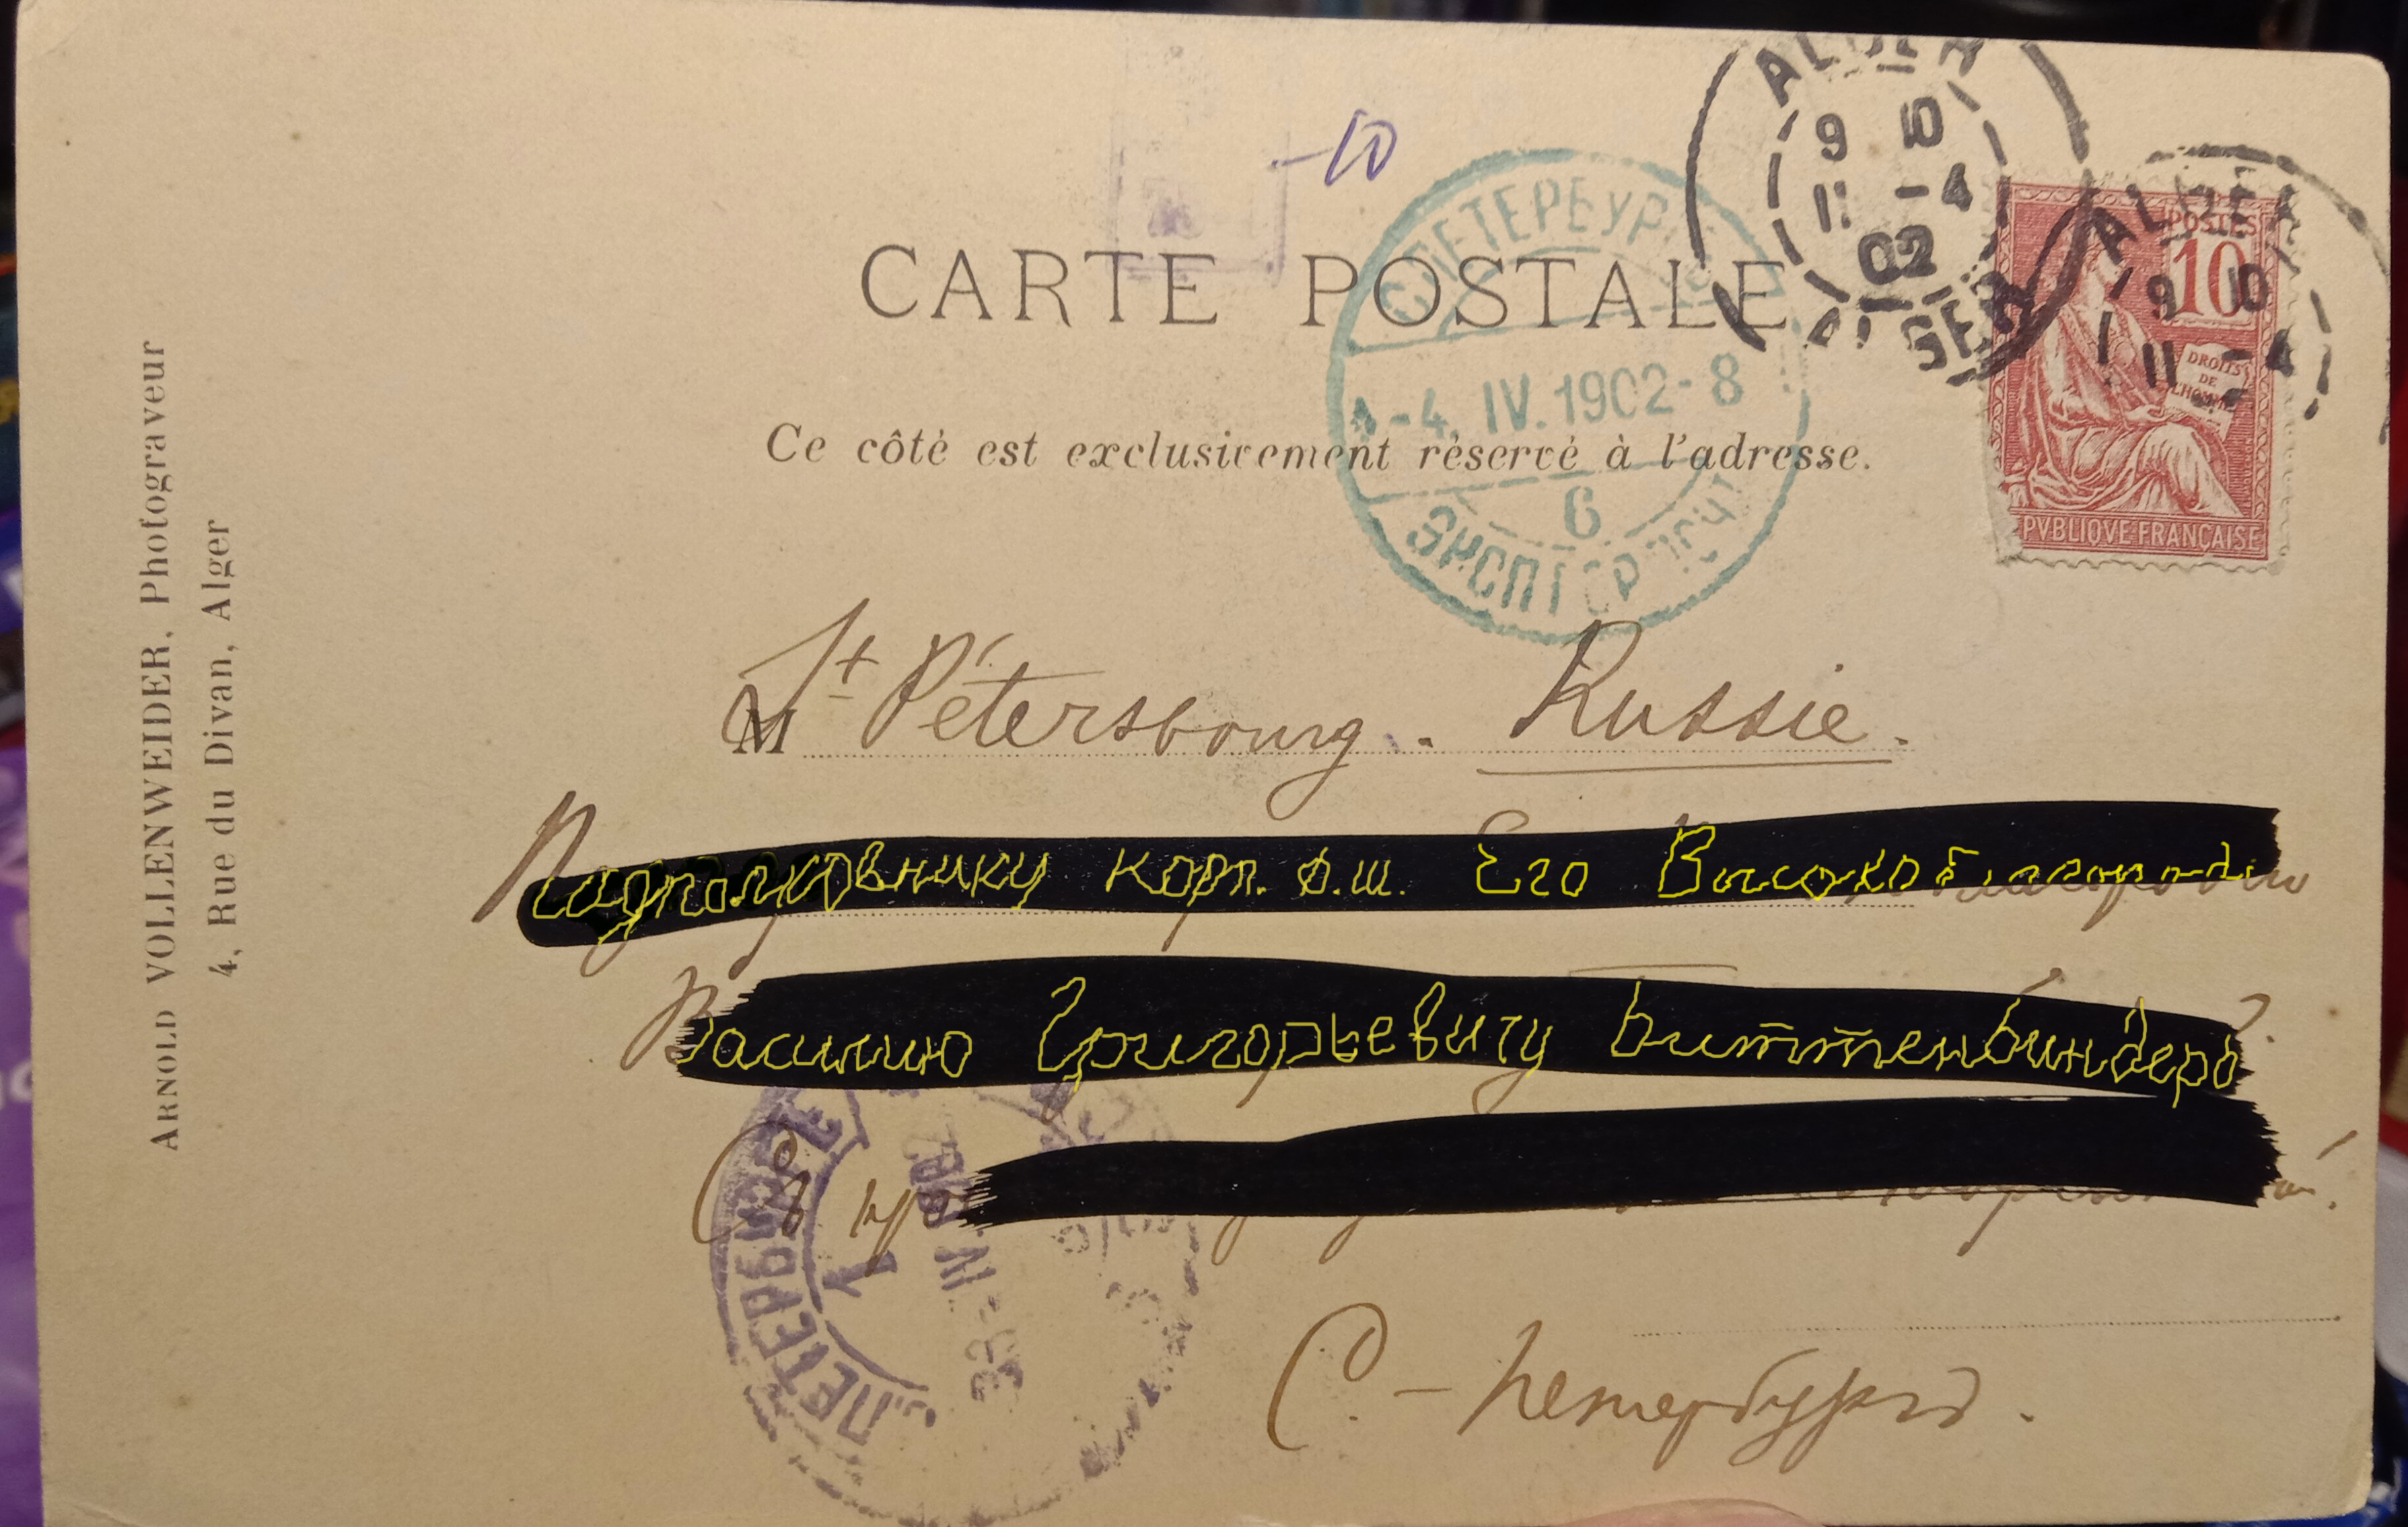 ALGER
9 10
11 -4
02
ALGER
ALGER
9 10
11 -4
POSTES
10
DROITS
DE
L'HOMME
RÉPVBLIQVE FRANÇAISE
-10
С.ПЕТЕРБУРГ
4-4.IV.1902-8
6
CARTE POSTALE
Ce côté est exclusivement réservé à l'adresse.
ARNOLD VOLLENWEIDER, Photograveur
4, Rue du Divan, Alger
St Pétersbourg. Russie.
M
Подполковнику корп. ф.ш. Его Высокоблагородію
Василию Григорьевичу Биттенбиндеръ.
Съ
С.-ПЕТЕРБУРГ
1
С.-Петербургъ.